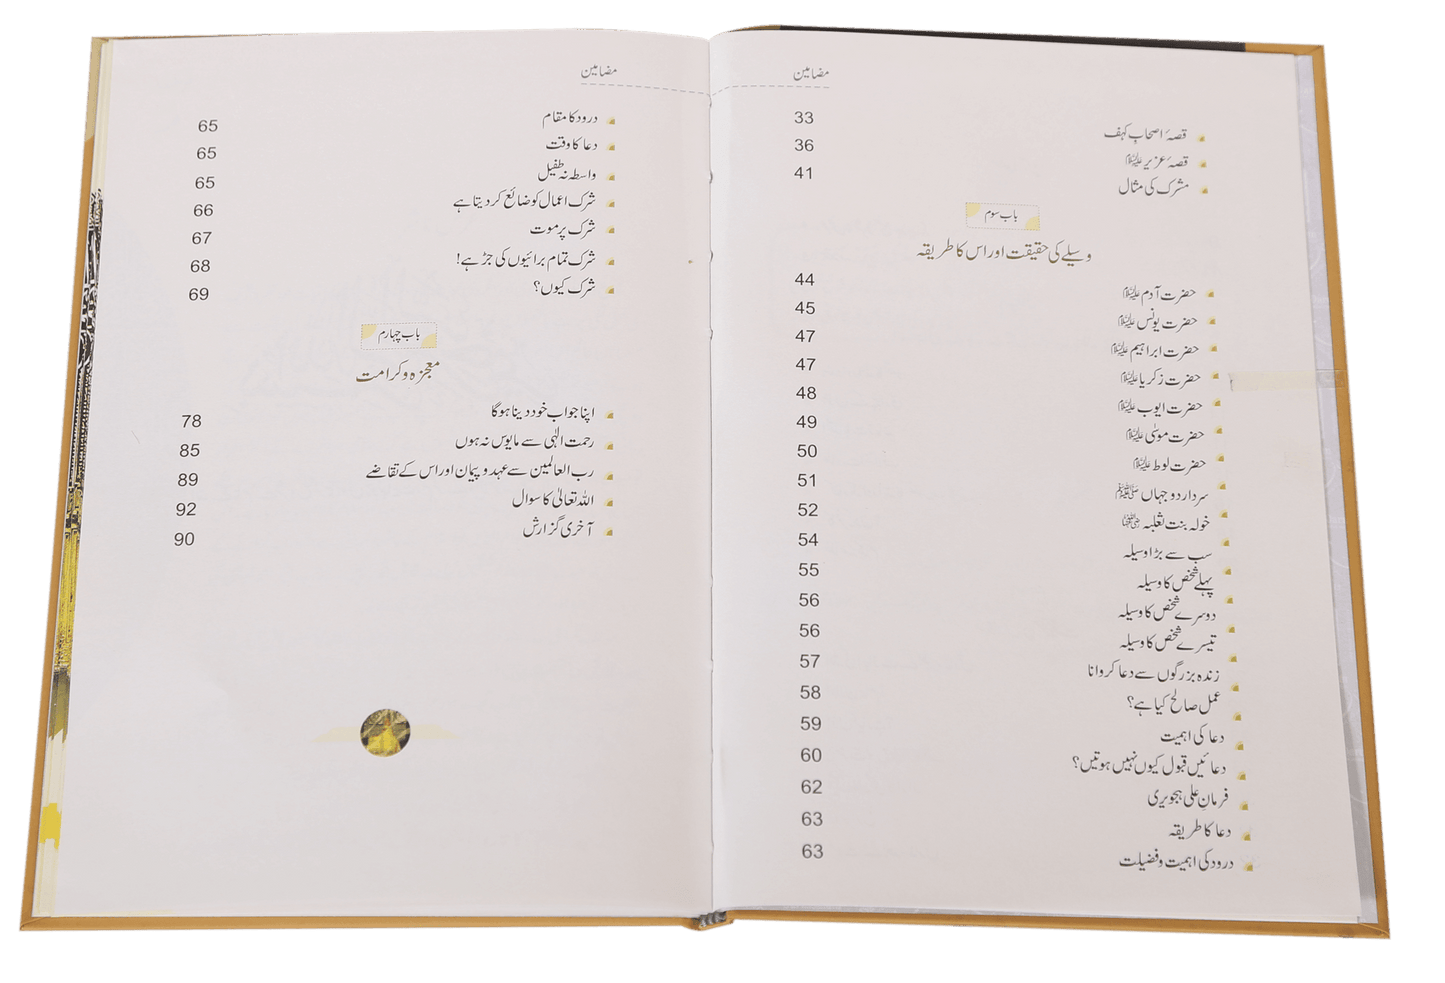 مضامین
قصۂ اصحابِ کہف 33
قصۂ عزیر علیہ السلام 36
مشرک کی مثال 41
باب سوم
وسیلے کی حقیقت اور اس کا طریقہ
حضرت آدم علیہ السلام 44
حضرت یونس علیہ السلام 45
حضرت ابراہیم علیہ السلام 47
حضرت زکریا علیہ السلام 47
حضرت ایوب علیہ السلام 48
حضرت موسٰی علیہ السلام 49
حضرت لوط علیہ السلام 50
سردار دو جہاں ﷺ 51
خولہ بنت ثعلبہ رضی اللہ عنہا 52
سب سے بڑا وسیلہ 54
پہلے شخص کا وسیلہ 55
دوسرے شخص کا وسیلہ 56
تیسرے شخص کا وسیلہ 56
زندہ بزرگوں سے دعا کروانا 57
عمل صالح کیا ہے؟ 58
دعا کی اہمیت 59
دعائیں قبول کیوں نہیں ہوتیں؟ 60
فرمانِ علی ہجویری 62
دعا کا طریقہ 63
درود کی اہمیت و فضیلت 63
مضامین
درود کا مقام 65
دعا کا وقت 65
واسطہ نہ طفیل 65
شرک اعمال کو ضائع کر دیتا ہے 66
شرک پر موت 67
شرک تمام برائیوں کی جڑ ہے! 68
شرک کیوں؟ 69
باب چہارم
معجزہ و کرامت
اپنا جواب خود دینا ہوگا 78
رحمت الٰہی سے مایوس نہ ہوں 85
رب العالمین سے عہد و پیمان اور اس کے تقاضے 89
اللہ تعالیٰ کا سوال 92
آخری گزارش 90